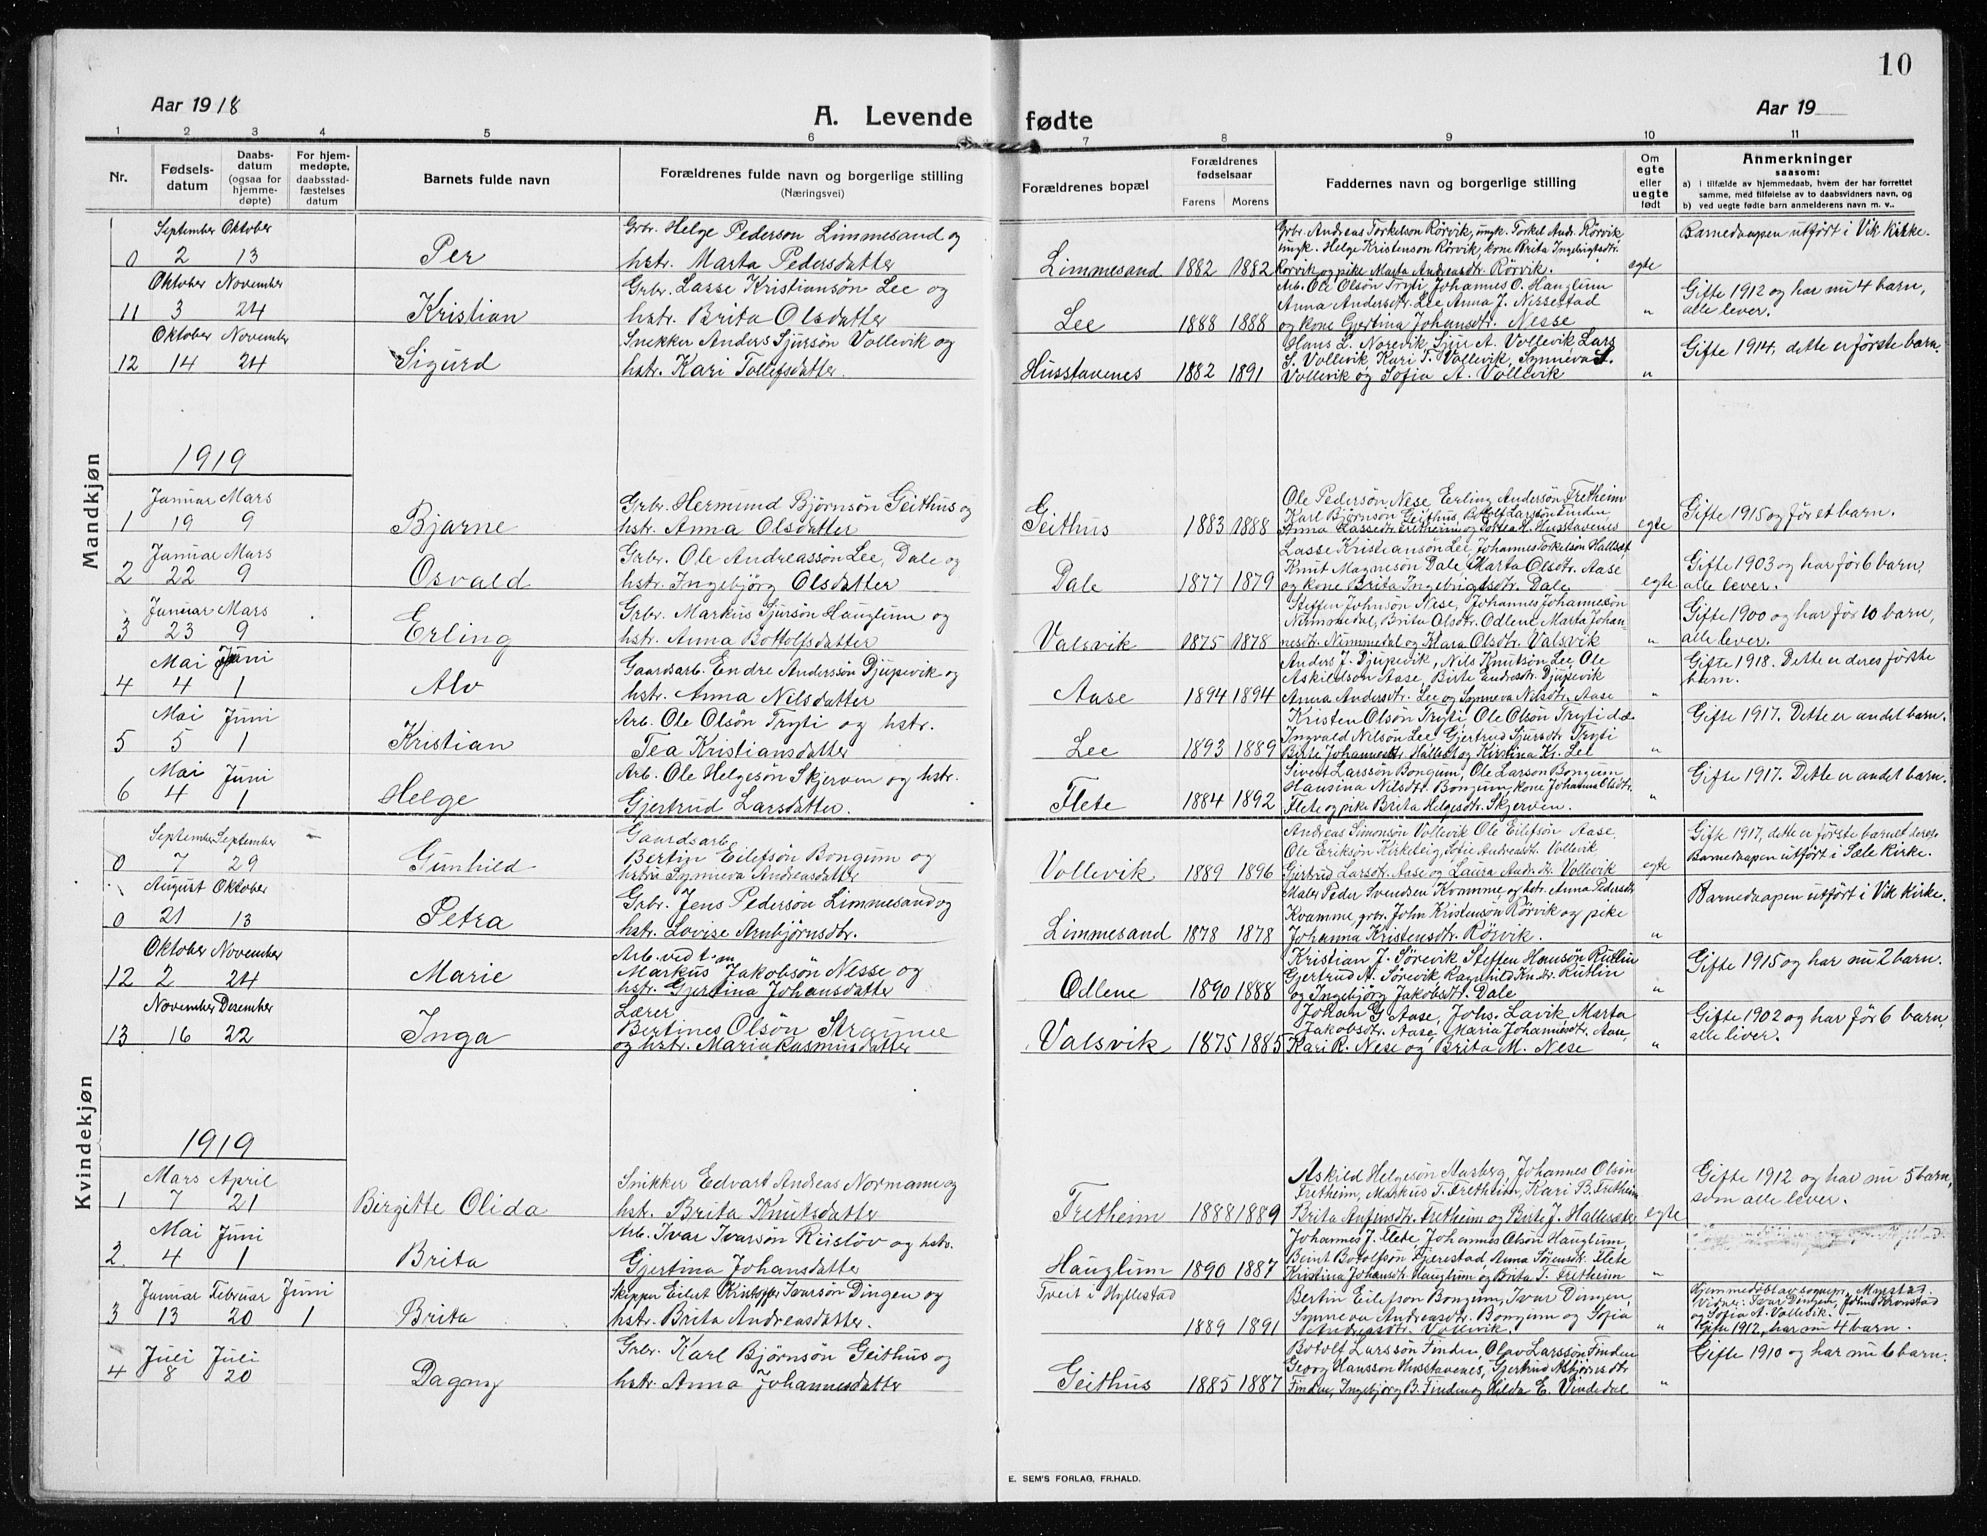 10
Aar 1918
A. Levende fødte
Aar 19
1 2 3 4 5 6 7 8 9 10 11
Nr.
Fødsels-
datum
Daabs-
datum
(ogsaa for
hjemme-
døpte)
For hjem-
medøpte,
daabsstad-
fæstelses
datum
Barnets fulde navn
Forældrenes fulde navn og borgerlige stilling
(Næringsvei)
Forældrenes bopæl
Forældrenes
fødselsaar
Farens Morens
Faddernes navn og borgerlige stilling
Om
egte
eller
uegte
født
Anmerkninger
saasom:
a) i tilfælde av hjemmedaab, hvem der har forrettet
samme, med tilføielse av to daabsvidners navn, og
b) ved uegte fødte barn anmelderens navn m. v..
Mandkjøn
September Oktober
0 2 13
Per
Grbr. Helge Pederson Limmesand og
hstr. Marta Pedersdatter
Limmesand 1882 1882
Grbr. Andreas Torkelson Rörvik, ungk. Torkel And. Rörvik
ungk. Helge Kristenson Rörvik, kone Brita Ingebrigtsdtr.
Rörvik og pike Marta Andreasdtr. Rörvik.
egte
Barnedaapen utført i Vik Kirke.
Oktober November
11 3 24
Kristian
Grbr. Lasse Kristiansøn Lee og
hstr. Brita Olsdatter
Lee 1888 1888
Arb. Ole Olsön Tryti, Johannes O. Hauglum
Anna Andersdtr. Lee Anna J. Nissestad
og kone Gjertina Johansdtr. Nesse
"
Gifte 1912 og har nu 4 barn,
alle lever.
Oktober November
12 14 24
Sigurd
Snekker Anders Sjursön Vollevik og
hstr. Kari Tollefsdatter.
Husstavenes 1882 1891
Hans L. Norevik Sjur A. Vollevik Lars
S. Vollevik Kari T. Vollevik, Synneva S.
Vollevik og Sofia A. Vollevik
"
Gifte 1914, dette er første barn.
1919
Januar Mars
1 19 9
Bjarne
Grbr. Hermund Bjørnsøn Geithus og
hstr. Anna Olsdatter
Geithus 1883 1888
Ole Pedersøn Nese, Erling Andersøn Fretheim
Karl Bjørnson Geithus, Botolf Larssøn Finden
Anna Lassedtr. Fretheim og Sofia H. Husstavenes
egte
Gifte 1915 og før et barn.
Januar Mars
2 22 9
Osvald
Grbr. Ole Andreassøn Lee, Dale og
hstr. Ingebjörg Olsdatter
Dale 1877 1879
Lasse Kristiansøn Lee, Johannes Torkelsön Hallsæt
Knut Magneson Dale, Marta Olsdtr. Aase
og kone Brita Ingebrigtsdtr. Dale
egte
Gifte 1903 og har før 6 barn,
alle lever.
Januar Mars
3 23 9
Erling
Grbr. Markus Sjursön Hauglum og
hstr. Anna Bottolfsdatter
Valsvik 1875 1878
Steffen Johnsön Nese, Johannes Johannesön
Nummedal, Brita Olsdtr. Odlene, Marta Johan-
nesdtr. Nummedal og Klara Olsdtr. Valsvik
"
Gifte 1900 og har før 10 barn,
alle lever.
Mai Juni
4 4 1
Alv
Gaardsarb. Endre Anderssön Djupevik og
hstr. Anna Nilsdatter
Aase 1894 1894
Anders J. Djupevik, Nils Knutsön Lee, Ole
Askildson Aase, Birte Endresdtr. Djupevik
Anna Andersdtr. Lee og Synneva Nilsdtr. Aase
"
Gifte 1918. Dette er deres første
barn.
Mai Juni
5 5 1
Kristian
Arb. Ole Olsön Tryti og hstr.
Tea Kristiansdatter
Lee 1893 1889
Kristen Olsön Tryti, Ole Olsön Tryti d.æ.
Ingvald Nilsön Lee, Gjertrud Sjursdtr. Tryti
Birte Johannesdtr. Hallset og Kirstina Kr. Lee
"
Gifte 1917. Dette er andet barn.
Mai Juni
6 4 1
Helge
Arb. Ole Helgesön Skjerven og hstr.
Gjertrud Larsdatter.
Flete 1884 1892
Sivert Larssön Bongum, Ole Larson Bongum
Hansina Nilsdtr. Bongum, kone Johanna Olsdtr.
Flete og pike Brita Helgesdtr. Skjerven.
"
Gifte 1917. Dette er andet barn.
Kvindekjøn
September September
0 7 29
Gunhild
Gaardsarb.
Bertin Eilefsön Bongum og
hstru Synneva Andreasdatter
Vollevik 1889 1896
Andreas Simonsön Vollevik Ole Eilefsön Aase,
Ole Eriksön Kirketeig, Sofie Andreasdtr. Vollevik
Gjertrud Larsdtr. Aase og Laura Andr.dtr. Vollevik
egte
Gifte 1917, dette er første barnet deres
Barnedaapen utført i Sæle Kirke.
August Oktober
0 21 13
Petra
Grbr. Jens Pedersøn Limmesand og
hstr. Lovise Arnbjørnsdtr.
Limmesand 1878 1878
Maler Peder Svendsen Kvamme og hstr. Anna Pedersdtr
Kvamme, grbr. John Kristensön Rörvik og pike
Johanna Kristensdtr. Rörvik.
"
Barnedaapen utført i Vik Kirke.
Oktober November
12 2 24
Marie
Markus Jakobsön Nesse og
hstr. Gjertina Johansdatter
Odlene 1890 1888
Kristian J. Sörevik Steffen Hansön Rutlin
Gjertrud A. Sörevik, Ragnhild Kn.dr. Rutlin
og Ingebjörg Jakobsdtr. Dale
"
Gifte 1915 og har nu 2 barn.
November Desember
13 16 22
Inga
Lærer
Bertines Olsön Straume
og hstr. Maria Rasmusdatter
Valsvik 1875 1885
Johan G. Aase, Johs. Lavik Marta
Jakobsdtr. Aase, Maria Johannesdtr. Aase,
Kari R. Nese og Brita M. Nese
"
Gifte 1902 og har før 6 barn,
alle liver.
1919
Mars April
1 7 21
Birgitte Olida
Snikker Edvart Andreas Normann og
hstr. Brita Knutsdatter
Fretheim 1888 1889
Askild Helgesøn Aasberg, Johannes Olsön
Fretheim, Markus T. Fretheim, Kari B. Fretheim
Brita Anfinsdtr. Fretheim og Birte J. Hallesæte
egte
Gifte 1912 og har nu 5 barn,
som alle lever.
Mai Juni
2. 4 1
Brita
Arb. Ivar Ivarsön Riislöv og hstr.
Gjertina Johansdatter
Hauglum 1890 1887
Johannes J. Flete, Johannes Olson Hauglum,
Beint Botolfson Fjerestad, Anna Sörensdtr. Flete
Kristina Johansdtr. Hauglum og Brita T. Fretheim
"
Januar Februar Juni
3 13 20 1
Brita
Skipper Eilert Kristoffer Ivarsön Dingen og
hstr. Brita Andreasdatter.
Tveit i Hyllestad
1889 1891
Bertin Eilefson Bongum, Ivar Dingen,
Synneva Andreasdtr. Bongum og Sofia
Andreasdtr. Vollevik.
"
Hjemmedøbt av sognepr. Mogstad.
Vidner: Ivar Dingen, Johan Kronstad
og Sofia A. Vollevik.
Gifte 1912, har nu 4 barn.
Juli Juli
4 8 20
Dagny
Grbr. Karl Björnsön Geithus og
hstr. Anna Johannesdatter
Geithus 1885 1887
Botolf Larssön Finden, Olav Larssön Finden
Georg Hansson Husstavenes, Gjertrud Asbjörnsdtr
Finden, Ingebjörg B. Finden og Hilda E. Vindedal
"
Gifte 1910 og har nu 6 barn.
E. SEM'S FORLAG, FR.HALD.